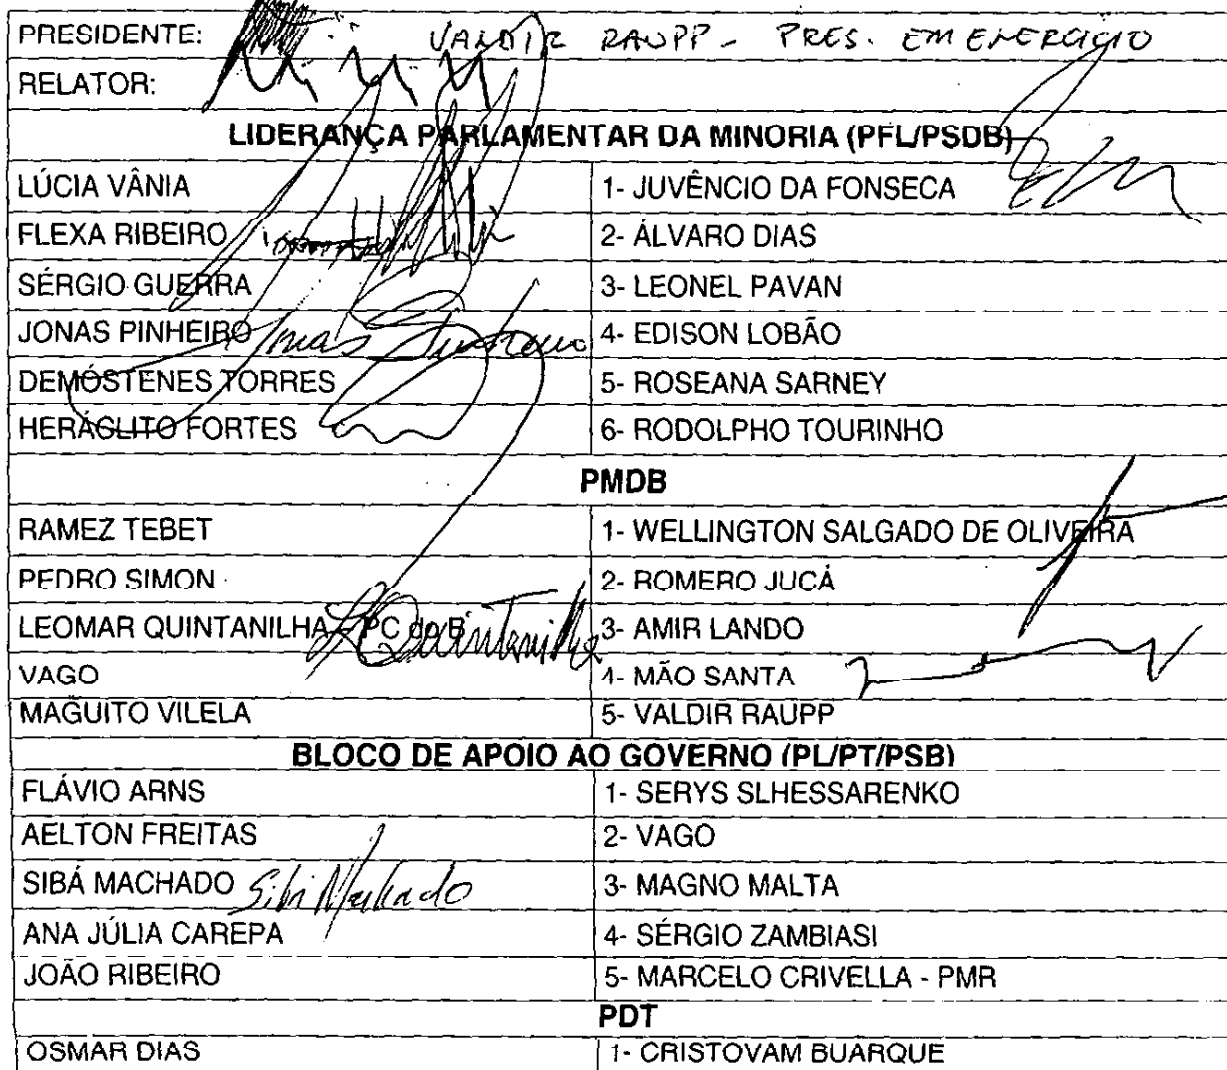 PRESIDENTE: VALDIR RAUPP - PRES. EM EXERCÍCIO
RELATOR:
LIDERANÇA PARLAMENTAR DA MINORIA (PFL/PSDB)
LÚCIA VÂNIA 1- JUVÊNCIO DA FONSECA
FLEXA RIBEIRO 2- ÁLVARO DIAS
SÉRGIO GUERRA 3- LEONEL PAVAN
JONAS PINHEIRO Jonas Pinheiro 4- EDISON LOBÃO
DEMÓSTENES TORRES 5- ROSEANA SARNEY
HERÁCLITO FORTES 6- RODOLPHO TOURINHO
PMDB
RAMEZ TEBET 1- WELLINGTON SALGADO DE OLIVEIRA
PEDRO SIMON 2- ROMERO JUCÁ
LEOMAR QUINTANILHA - PC do B LQuintanilha 3- AMIR LANDO
VAGO 4- MÃO SANTA
MAGUITO VILELA 5- VALDIR RAUPP
BLOCO DE APOIO AO GOVERNO (PL/PT/PSB)
FLÁVIO ARNS 1- SERYS SLHESSARENKO
AELTON FREITAS 2- VAGO
SIBÁ MACHADO Sibá Machado 3- MAGNO MALTA
ANA JÚLIA CAREPA 4- SÉRGIO ZAMBIASI
JOÃO RIBEIRO 5- MARCELO CRIVELLA - PMR
PDT
OSMAR DIAS 1- CRISTOVAM BUARQUE